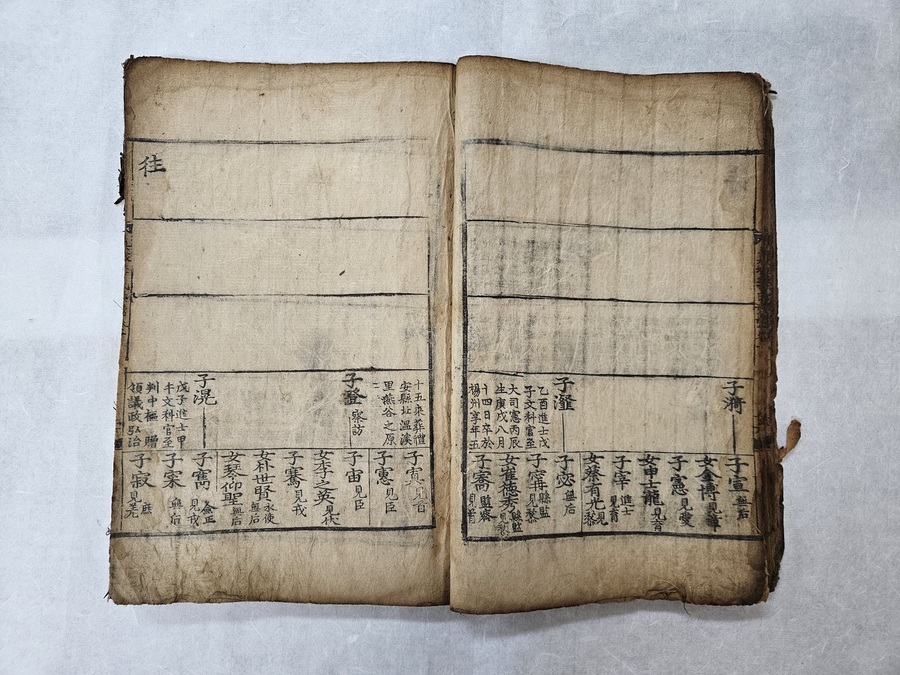 子濟
子澄
乙酉進士戊
子文科官至
大司憲丙辰
生庚戌八月
十四日卒於
楊州享年五
子宣無后
女金博見
子憲見愛
女申士龍見育
子宰進士見育
女蔡有光見黎
子宓無后
子寗縣監見黎
女崔德秀縣監見黎
子喬監察見首
十五來葬
安縣北溫溪
里燕谷之原
子登察訪
子滉
戊子進士甲
午文科官至
判中樞贈
領議政弘治
子寅見首
子憲見臣
子宙見臣
女李之英見伏
子騫見戎
女朴世賢水使無后
女琴仰聖無后
子寯僉正見戎
子寀無后
子寂見羌
往